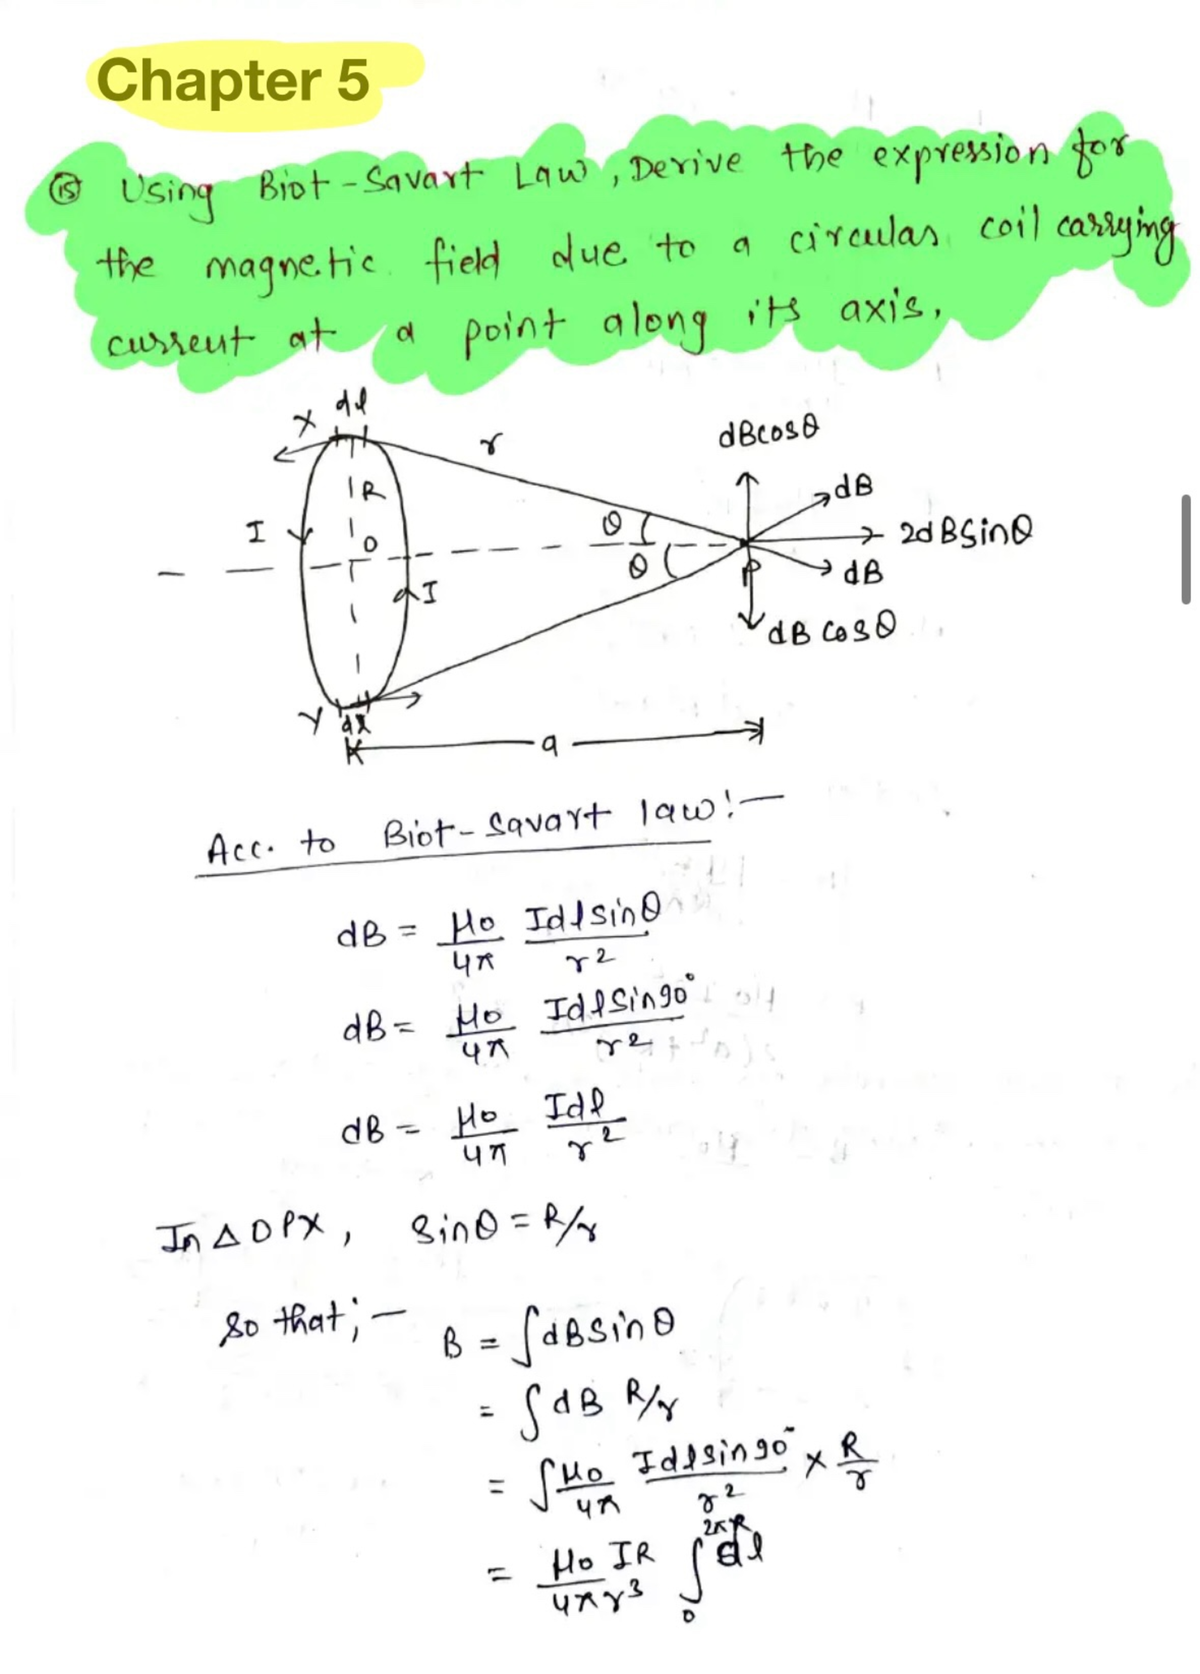 Chapter 5
(15) Using Biot-Savart Law, Derive the expression for
the magnetic field due to a circular coil carrying
current at a point along its axis.
X dl
r
dBcosθ
R
dB
I
O
θ
2dBsinθ
θ
P
dB
I
dB cosθ
Y dl
a
Acc. to Biot-Savart law:-
dB = μ0/4π Idlsinθ/r²
dB = μ0/4π Idlsin90°/r²
dB = μ0/4π Idl/r²
In △OPX, sinθ = R/r
So that;- B = ∫dBsinθ
= ∫dB R/r
= ∫μ0/4π Idlsin90°/r² × R/r
= μ0 IR/4πr³ ∫₀^2πR dl